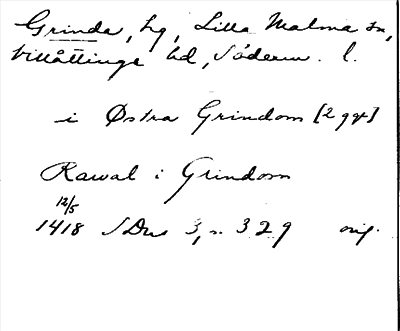 Grinda, hg, Lilla Malma sn,
Villåttinge hd, Söderm. l.
i Østra Grindom [2 ggr]
Rawal i Grindom
12/5
1418 SDns 3, s. 329 orig.